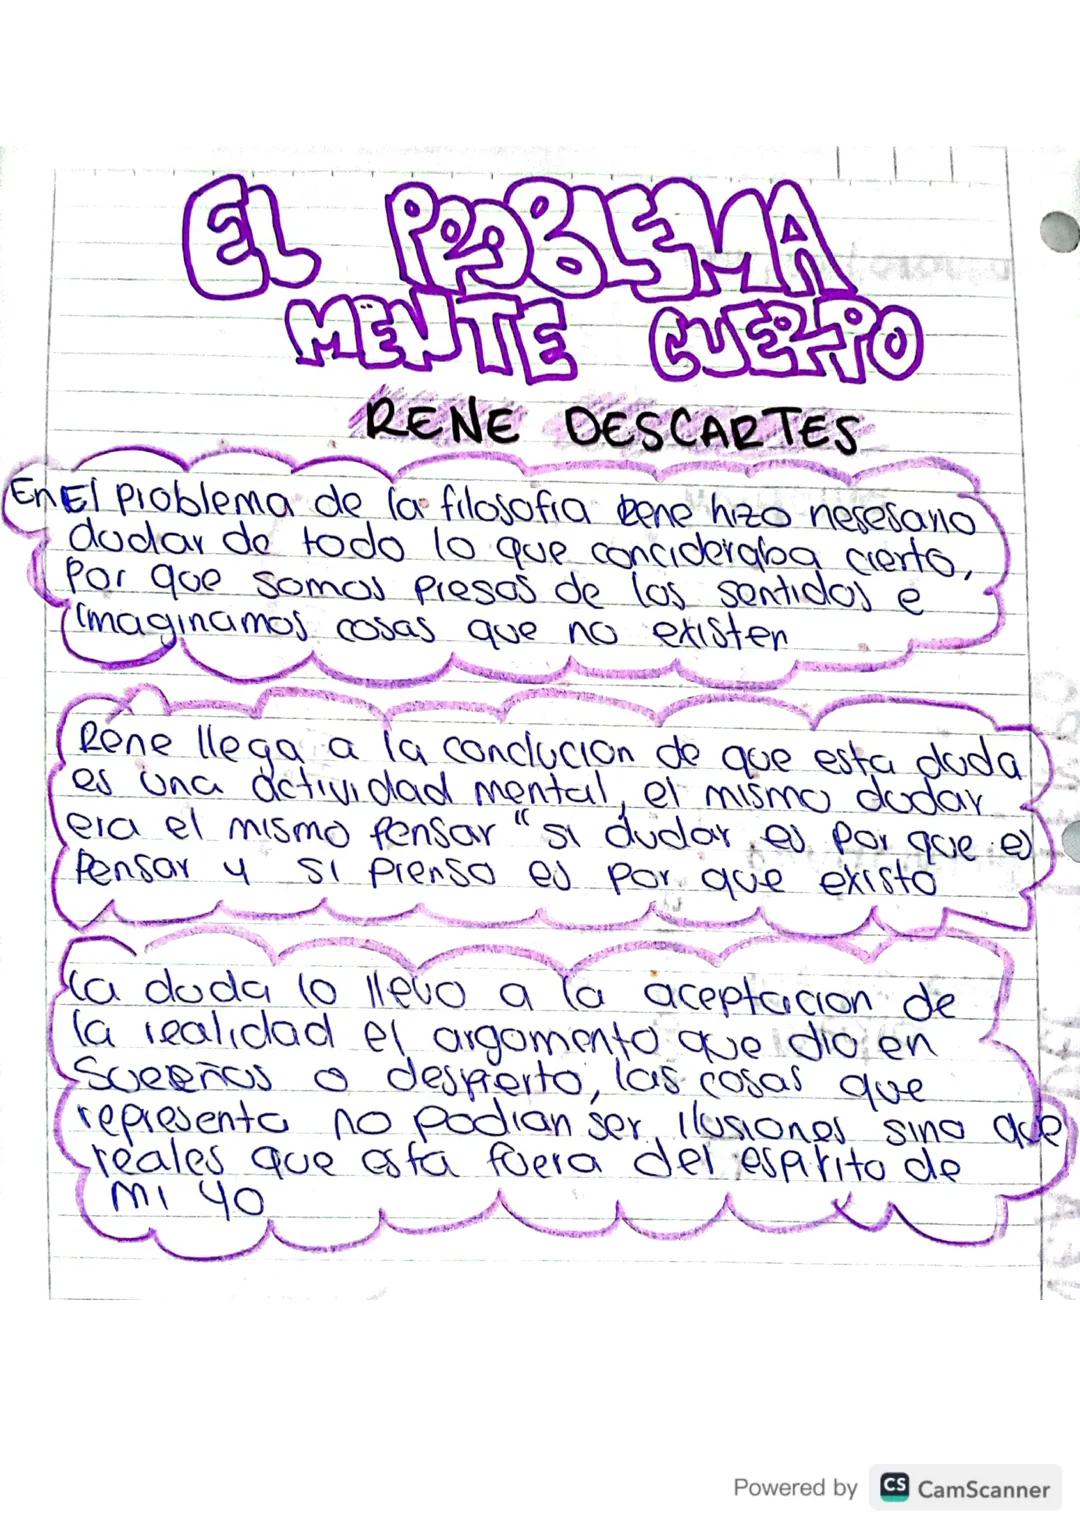 EL PROBLEMA
MENTE CUERPO
RENE DESCARTES
En El problema de la filosofia Rene hizo nesesario
dudar de todo lo que concideraba cierto,
Por que somos presas de los sentidos e
imaginamos cosas que no existen
Rene llega a la conclucion de que esta duda
es una actividad mental, el mismo dudar
era el mismo pensar "si dudar es por que es
Pensar y si pienso es por que existo
La duda lo llevo a la aceptacion de
la realidad el argomento que dio en
Sueños o despierto, las cosas que
representa no podian ser ilusiones sino que
reales que esta fuera del espirito de
mi yo
Powered by CS CamScanner